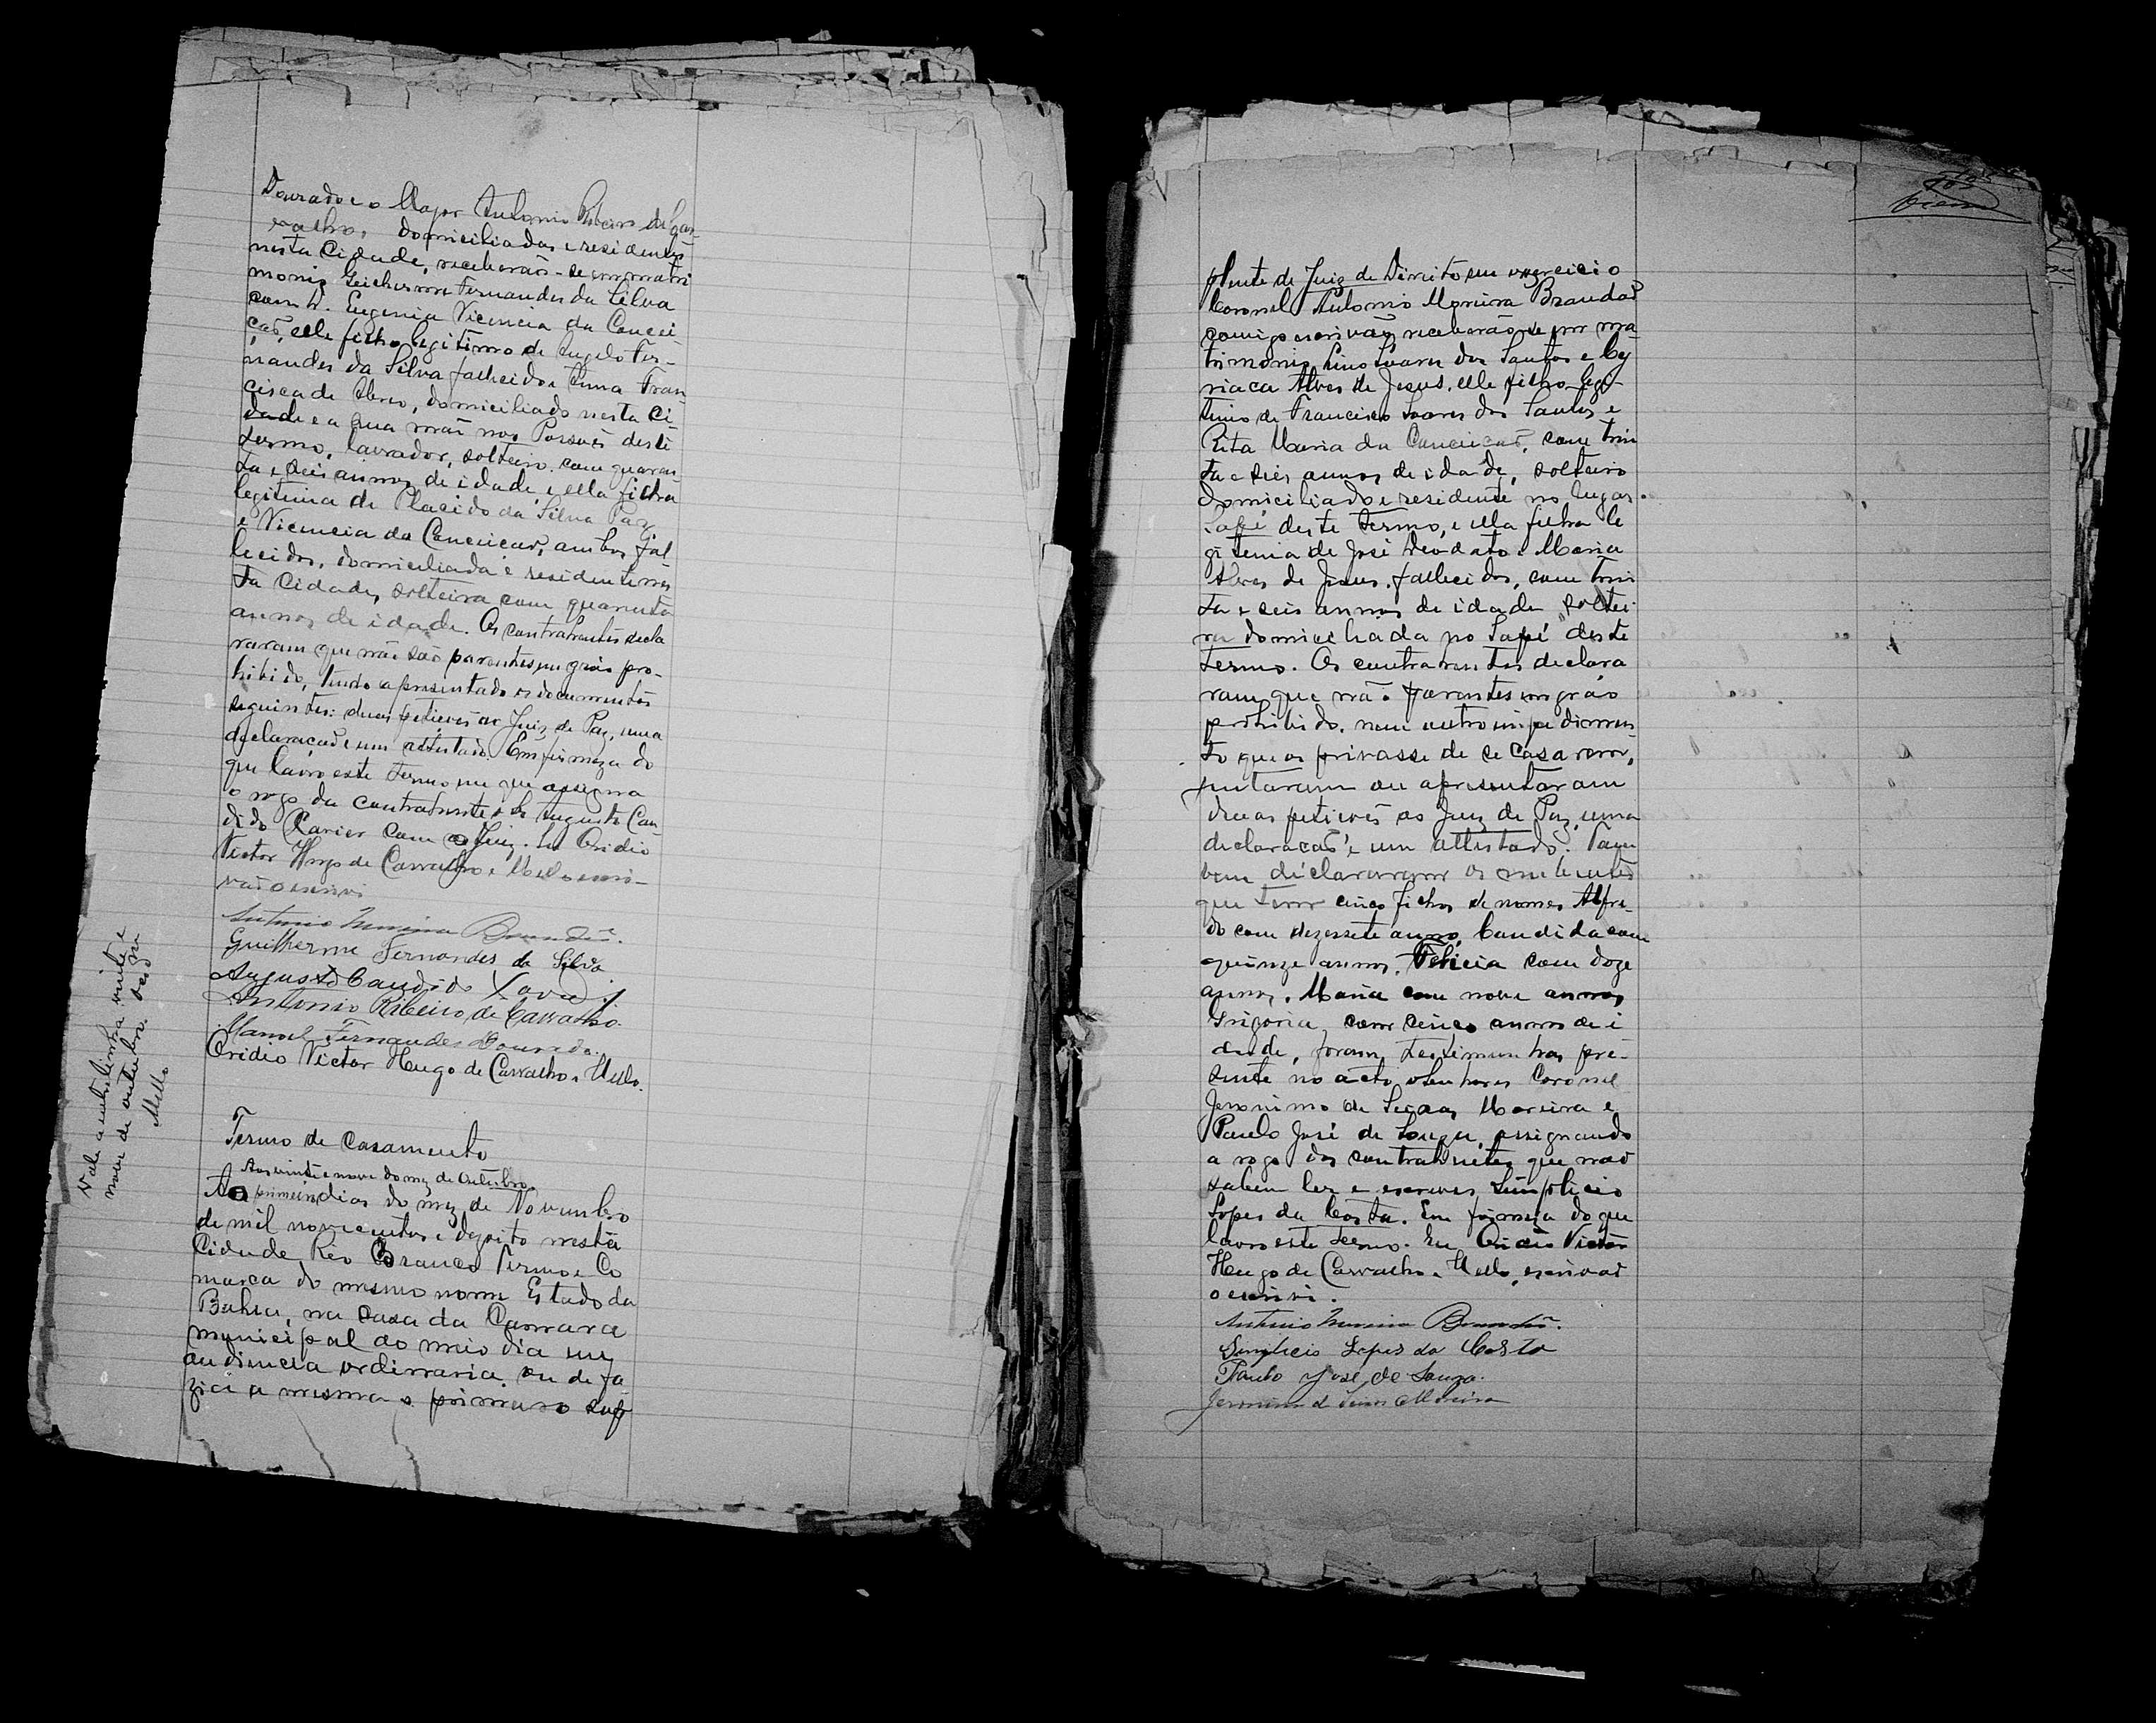 Dourado e o Major Antonio Ribeiro de Car-
valho, domiciliados e residentes
nesta Cidade, receberão-se em matri
monio Geilherme Fernandes da Silva
com D. Eugenia Vicencia da Concei-
ção, elle filho legitimo de Angelo Fer-
nandes da Silva fallecido e Anna Fran
cisca de Abreu, domiciliado nesta Ci-
dade e a sua mãi nos Poroués deste
termo, lavrador, solteiro, com quaren
ta e seis annos de idade, e ella filha
legitima de Placido da Silva Paz
e Vicencia da Conceicao, ambos fal
lecidos, domiciliada e residente nes
ta Cidade, solteira com quarenta
annos de idade. Os contrahentes decla
raram que não são parentes em gráo pro-
hibido, tendo apresentado os documentos
seguintes: duas petições ao Juiz de Paz, uma
declaração e um attestado. Em firmeza do
que lavro este termo em que assigna
o rogo da contrahente o Sr Augusto Can
dido Xavier com o Juiz. Eu Ovidio
Victor Hugo de Carvalho e Mello escri-
vão escrivi
Antonio Moreira Brandão.
Guilherme Fernandes da Silva
Augusto Candido Xavier
Antonio Ribeiro de Carvalho.
Manoel Fernandes Dourado.
Ovidio Victor Hugo de Carvalho e Mello.
Vale a entrelinha vinte e
nove de outubro.
Mello
Termo de Casamento
Aos vinte e nove do mez de Outubro.
Ao primeiro dias do mez de Novembro
de mil novecentos e dezoito nesta
Cidade Rio Branco Termo e Co
marca do mesmo nome Estado da
Bahia, na casa da Camara
municipal ao meio dia em
audiencia ordinaria, ou de fa
zia a mesma o primeiro sup
plente de Juiz de Direito em exercicio
Coronel Antonio Moreira Brandão
comigo escrivão, receberão-se por ma
trimonio Lino Soares dos Santos e Cy
riaca Alves de Jesus, elle filho legi-
timo de Francisco Soares dos Santos e
Rita Maria da Conceicaõ, com trin
ta e seis annos de idade, solteiro
domiciliado e residente no lugar
Sapé deste termo, e ella filha le
gitema de José Deodato e Maria
Alves de Jesus, fallecidos, com trin
ta e seis annos de idade soltei
ra domicilhada no Sapé deste
termo. Os contrahentes declara
ram que não parentes em gráo
prohibido, nem outro impedimen
to que os privasse de se casarem,
juntaram ou apresentaram
duas petições ao Juiz de Paz, uma
declaração e um attestado. Tam
bem declararam os nubentes
que tem cinco filhos de nomes Alfre-
do com dezessete annos, Candida com
quinze annos, Felicia com doze
annos, Maria com nove annos
Grigoria, com cinco annos de i
dade, foram testimunhas pre-
sente no acto osenhores Coronel
Jeronimo de Seixas Moreira e
Paulo José de Souza, assignando
a rogo dos contrahentes que não
sabem ler e escrever, Simplicio
Lopes da Costa. Em firmeza do que
lavro este termo. Eu Ovidio Victor
Hugo de Carvalho e Mello, escrivão
o escrivi.
Antonio Moreira Brandão.
Simplicio Lopes da Costa
Paulo José de Souza.
Jeronimo de Seixas Moreira